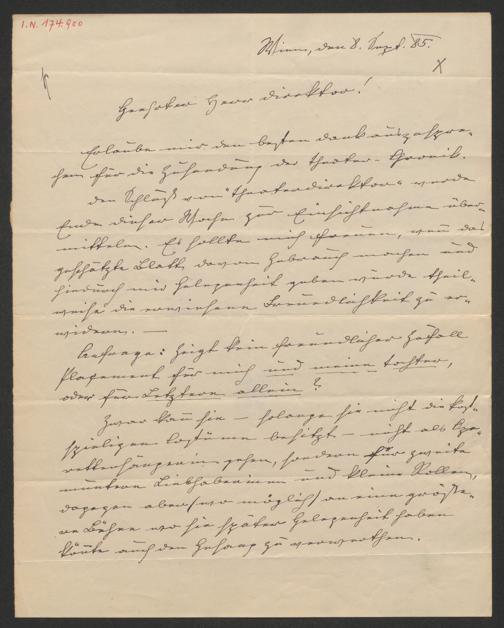 I.N. 174.900
Wien, den 8. Sept. 85.
Geehrter Herr Direktor!
Erlaube mir den besten Dank auszuspre-
chen für die Zusendung der Theater-Chronik.
Den Schluß vom "Theaterdirektor" werde
Ende dieser Woche zur Einsichtnahme über-
mitteln. Es sollte mich freuen, wenn das
geschätzte Blatt davon Gebrauch machen und
hiedurch mir Gelegenheit geben würde theil-
weise die erwiesene Freundlichkeit zu er-
widern. —
Anfrage: Zeigt kein freundlicher Zufall
Placement für mich und meine Tochter,
oder für Letztere allein?
Zwar kann sie — solange sie nicht die kost-
spieligen Costüme besitzt — nicht als Ope-
rettensängerin gehen, sondern für zweite
muntere Liebhaberinen und kleine Rollen,
dagegen aber (wo möglich) an eine größe-
re Bühne wo sie später Gelegenheit haben
könnte auch den Gesang zu verwerthen.